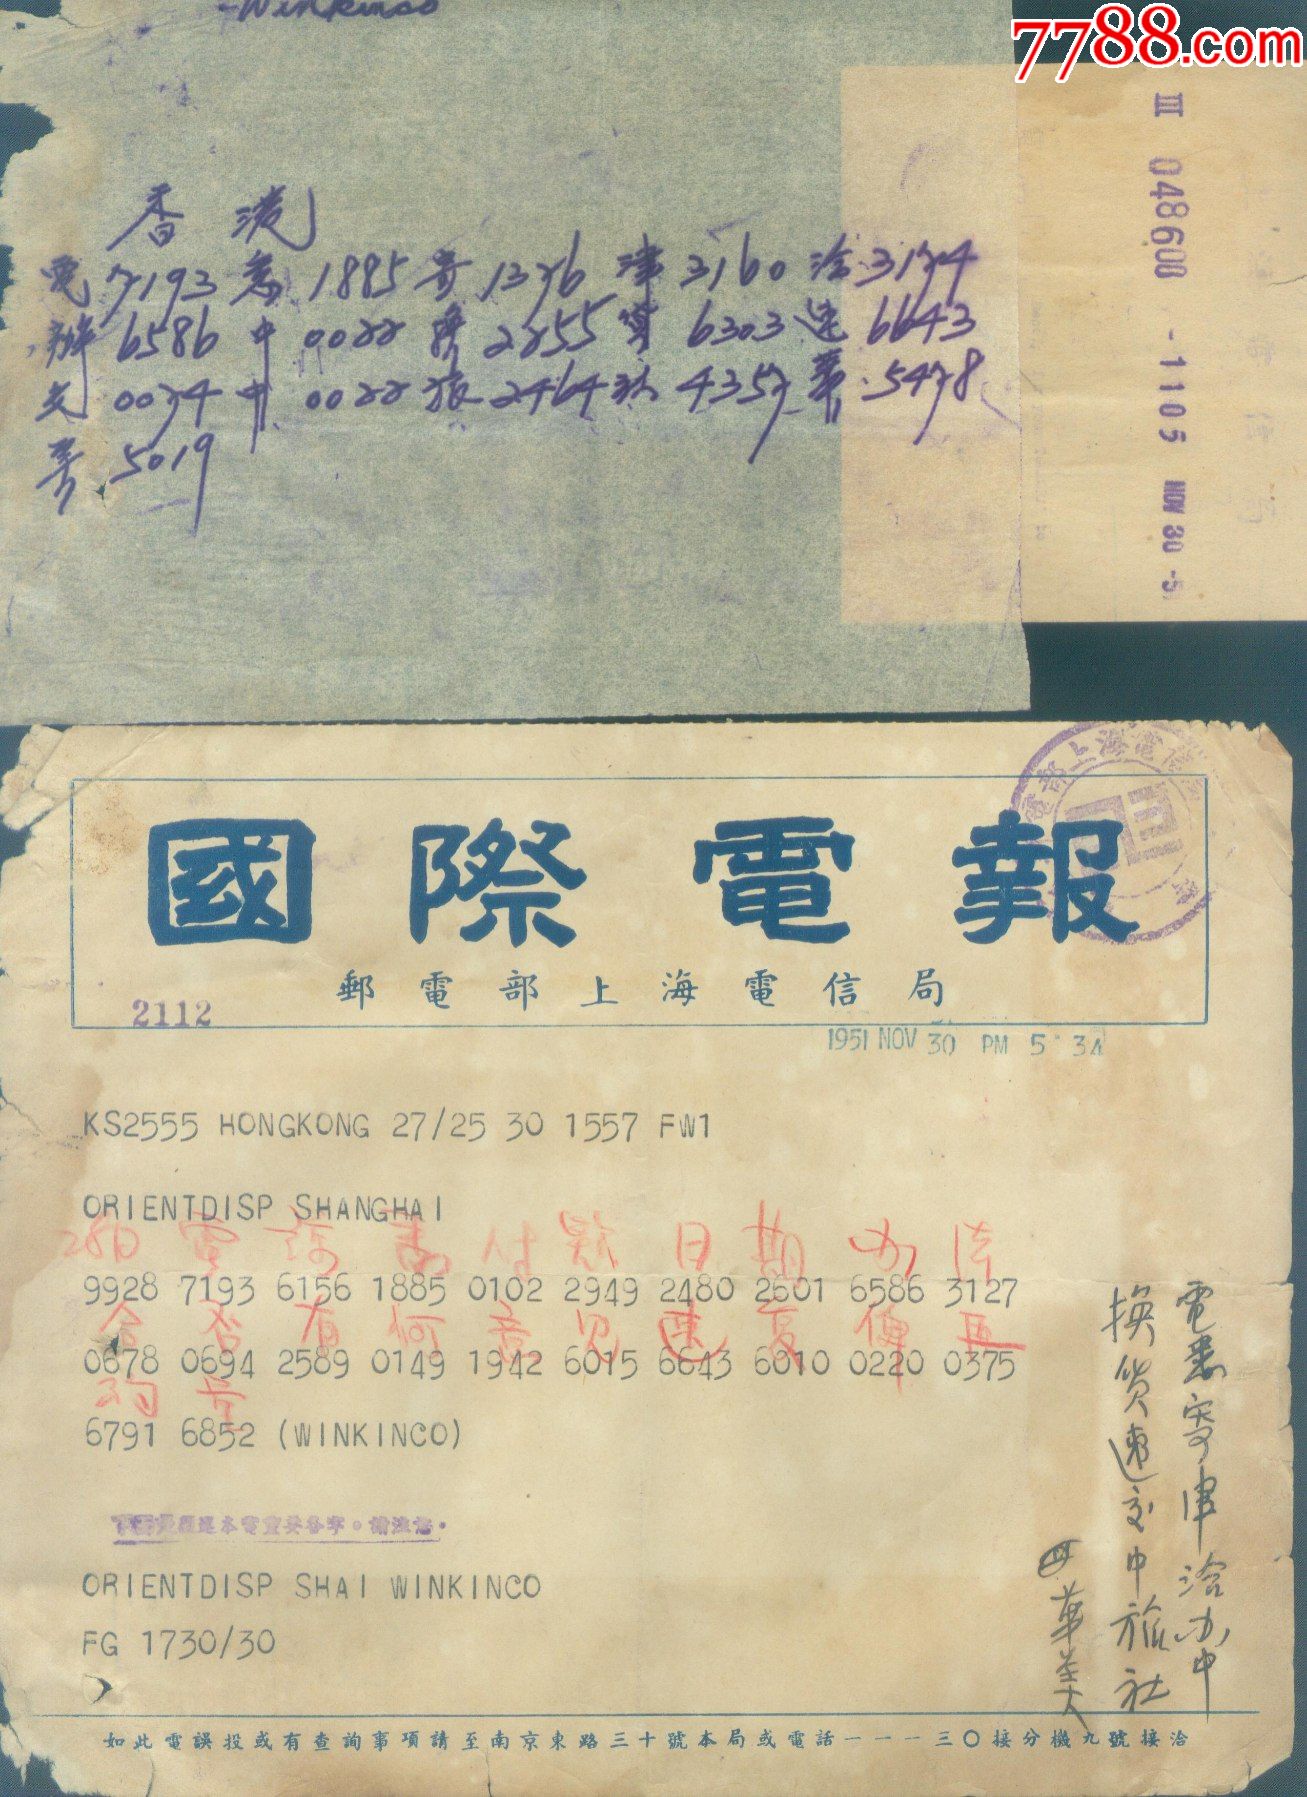 7788.com
-Winkinco
香港
電 7193 悉 1885 寄 1376 津 3160 洽 3174
辦 6586 中 0022 換 2255 貨 6303 速 6643
交 0074 中 0022 旅 2464 社 4357 華 5478
美 5019
III 048608 -1105 NOV 30 -5
國際電報
郵電部上海電信局
2112
1951 NOV 30 PM 5 34
KS2555 HONGKONG 27/25 30 1557 FW1
ORIENTDISP SHANGHAI
28日 電 請 悉 付 款 日 期 办 法
9928 7193 6156 1885 0102 2949 2480 2601 6586 3127
合 否 有 何 意 見 速 复 俾 再
0678 0694 2589 0149 1942 6015 6643 6010 0220 0375
6791 6852 (WINKINCO)
ORIENTDISP SHAI WINKINCO
FG 1730/30
電悉寄津洽办中
換貨速交中旅社
華美
如此電誤投或有查詢事項請至南京東路三十號本局或電話一一一三〇接分機九號接洽